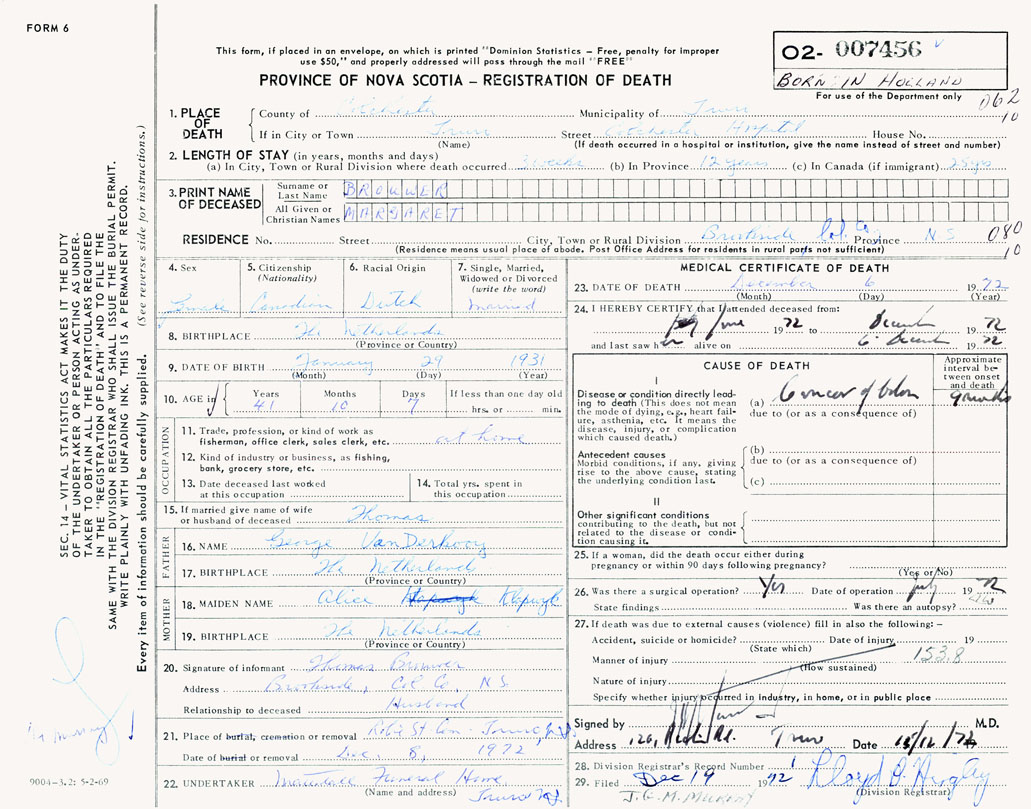 FORM 6
This form, if placed in an envelope, on which is printed "Dominion Statistics – Free, penalty for improper
use $50," and properly addressed will pass through the mail "FREE"
PROVINCE OF NOVA SCOTIA – REGISTRATION OF DEATH
02- 007456
BORN IN HOLLAND
For use of the Department only
062
10
1. PLACE OF DEATH
County of Colchester Municipality of Truro
If in City or Town Truro Street Colchester Hospital House No.
(Name) (If death occurred in a hospital or institution, give the name instead of street and number)
2. LENGTH OF STAY (in years, months and days)
(a) In City, Town or Rural Division where death occurred 3 weeks (b) In Province 12 years (c) In Canada (if immigrant) 25 yrs
3. PRINT NAME OF DECEASED
Surname or Last Name BROUWER
All Given or Christian Names MARGARET
RESIDENCE No. Street City, Town or Rural Division Brookside Col. Co. Province N.S. 080
(Residence means usual place of abode. Post Office Address for residents in rural parts not sufficient) 10
4. Sex Female
5. Citizenship (Nationality) Canadian
6. Racial Origin Dutch
7. Single, Married, Widowed or Divorced (write the word) married
8. BIRTHPLACE The Netherlands
(Province or Country)
9. DATE OF BIRTH January 29 1931
(Month) (Day) (Year)
10. AGE in Years 41 Months 10 Days 7 If less than one day old
hrs. or min.
OCCUPATION
11. Trade, profession, or kind of work as
fisherman, office clerk, sales clerk, etc. at home
12. Kind of industry or business, as fishing,
bank, grocery store, etc.
13. Date deceased last worked
at this occupation
14. Total yrs. spent in
this occupation
15. If married give name of wife
or husband of deceased Thomas
FATHER
16. NAME George VanDerhoog
17. BIRTHPLACE The Netherlands
(Province or Country)
MOTHER
18. MAIDEN NAME Alice
19. BIRTHPLACE The Netherlands
(Province or Country)
20. Signature of informant Thomas Brouwer
Address Brookside, Col Co. N.S.
Relationship to deceased Husband
21. Place of burial, cremation or removal Robie St Cem. Truro, N.S.
Date of burial or removal Dec. 8, 1972
22. UNDERTAKER Mattatall Funeral Home
(Name and address) Truro N.S.
MEDICAL CERTIFICATE OF DEATH
23. DATE OF DEATH December 6 1972
(Month) (Day) (Year)
24. I HEREBY CERTIFY that I attended deceased from:
June 1972 to December 1972
and last saw her alive on 6 December 1972
CAUSE OF DEATH
Approximate interval between onset and death
I
Disease or condition directly leading to death (This does not mean the mode of dying, e.g., heart failure, asthenia, etc. It means the disease, injury, or complication which caused death.)
(a) Cancer of colon
due to (or as a consequence of)
Antecedent causes
Morbid conditions, if any, giving rise to the above cause, stating the underlying condition last.
(b)
due to (or as a consequence of)
(c)
II
Other significant conditions
contributing to the death, but not related to the disease or condition causing it.
25. If a woman, did the death occur either during
pregnancy or within 90 days following pregnancy?
(Yes or No)
26. Was there a surgical operation? Yes Date of operation July 1972
State findings Was there an autopsy? No
27. If death was due to external causes (violence) fill in also the following: –
Accident, suicide or homicide? Date of injury 19
(State which)
Manner of injury 153.8
(How sustained)
Nature of injury
Specify whether injury occurred in industry, in home, or in public place
Signed by M.D.
Address Truro Date
28. Division Registrar's Record Number
29. Filed Dec 19 1972 Lloyd
(Division Registrar)
J.G.M. Murray
SEC. 14 – VITAL STATISTICS ACT MAKES IT THE DUTY
OF THE UNDERTAKER OR PERSON ACTING AS UNDER-
TAKER TO OBTAIN ALL THE PARTICULARS REQUIRED
IN THE "REGISTRATION OF DEATH" AND TO FILE THE
SAME WITH THE DIVISION REGISTRAR WHO SHALL ISSUE THE BURIAL PERMIT.
WRITE PLAINLY WITH UNFADING INK. THIS IS A PERMANENT RECORD.
Every item of information should be carefully supplied. (See reverse side for instructions.)
9004-3.2: 5-2-69